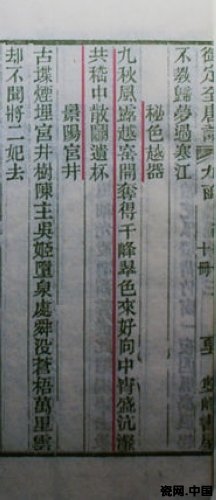 御定全唐詩
不教歸夢過寒江
秘色越器
九秋風露越窑開奪得千峰翠色來好向中宵盛沆瀣
共嵇中散鬬遺杯
景陽宫井
古堞煙埋宫井樹陳主吳姬墮泉處舜没蒼梧萬里雲
却不聞將二妃去
瓷网.中国